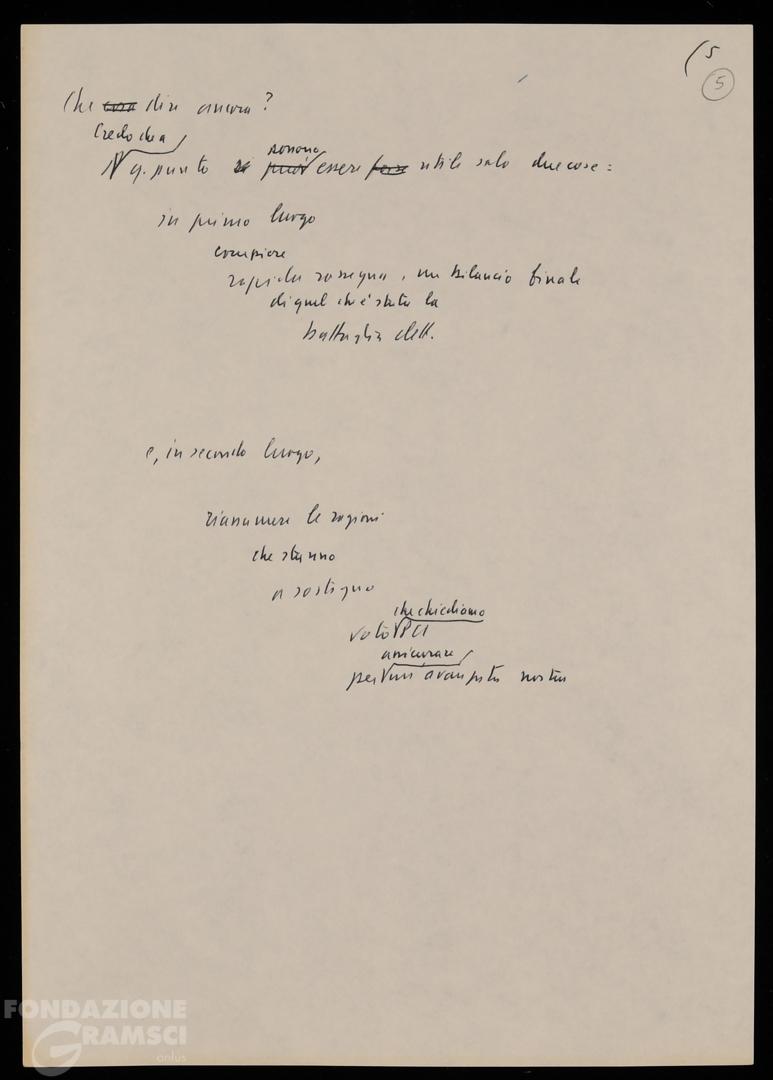 (5
5
Che cosa dire ancora?
Credo che a
q. punto si può essere forse utile solo due cose:
possono
in primo luogo
compiere
rapida rassegna, un bilancio finale
di quel che è stata la
battaglia elett.
e, in secondo luogo,
riassumere le ragioni
che stanno
a sostegno
che chiediamo
voto PCI
assicurare
per una avanzata nostra
FONDAZIONE
GRAMSCI
onlus